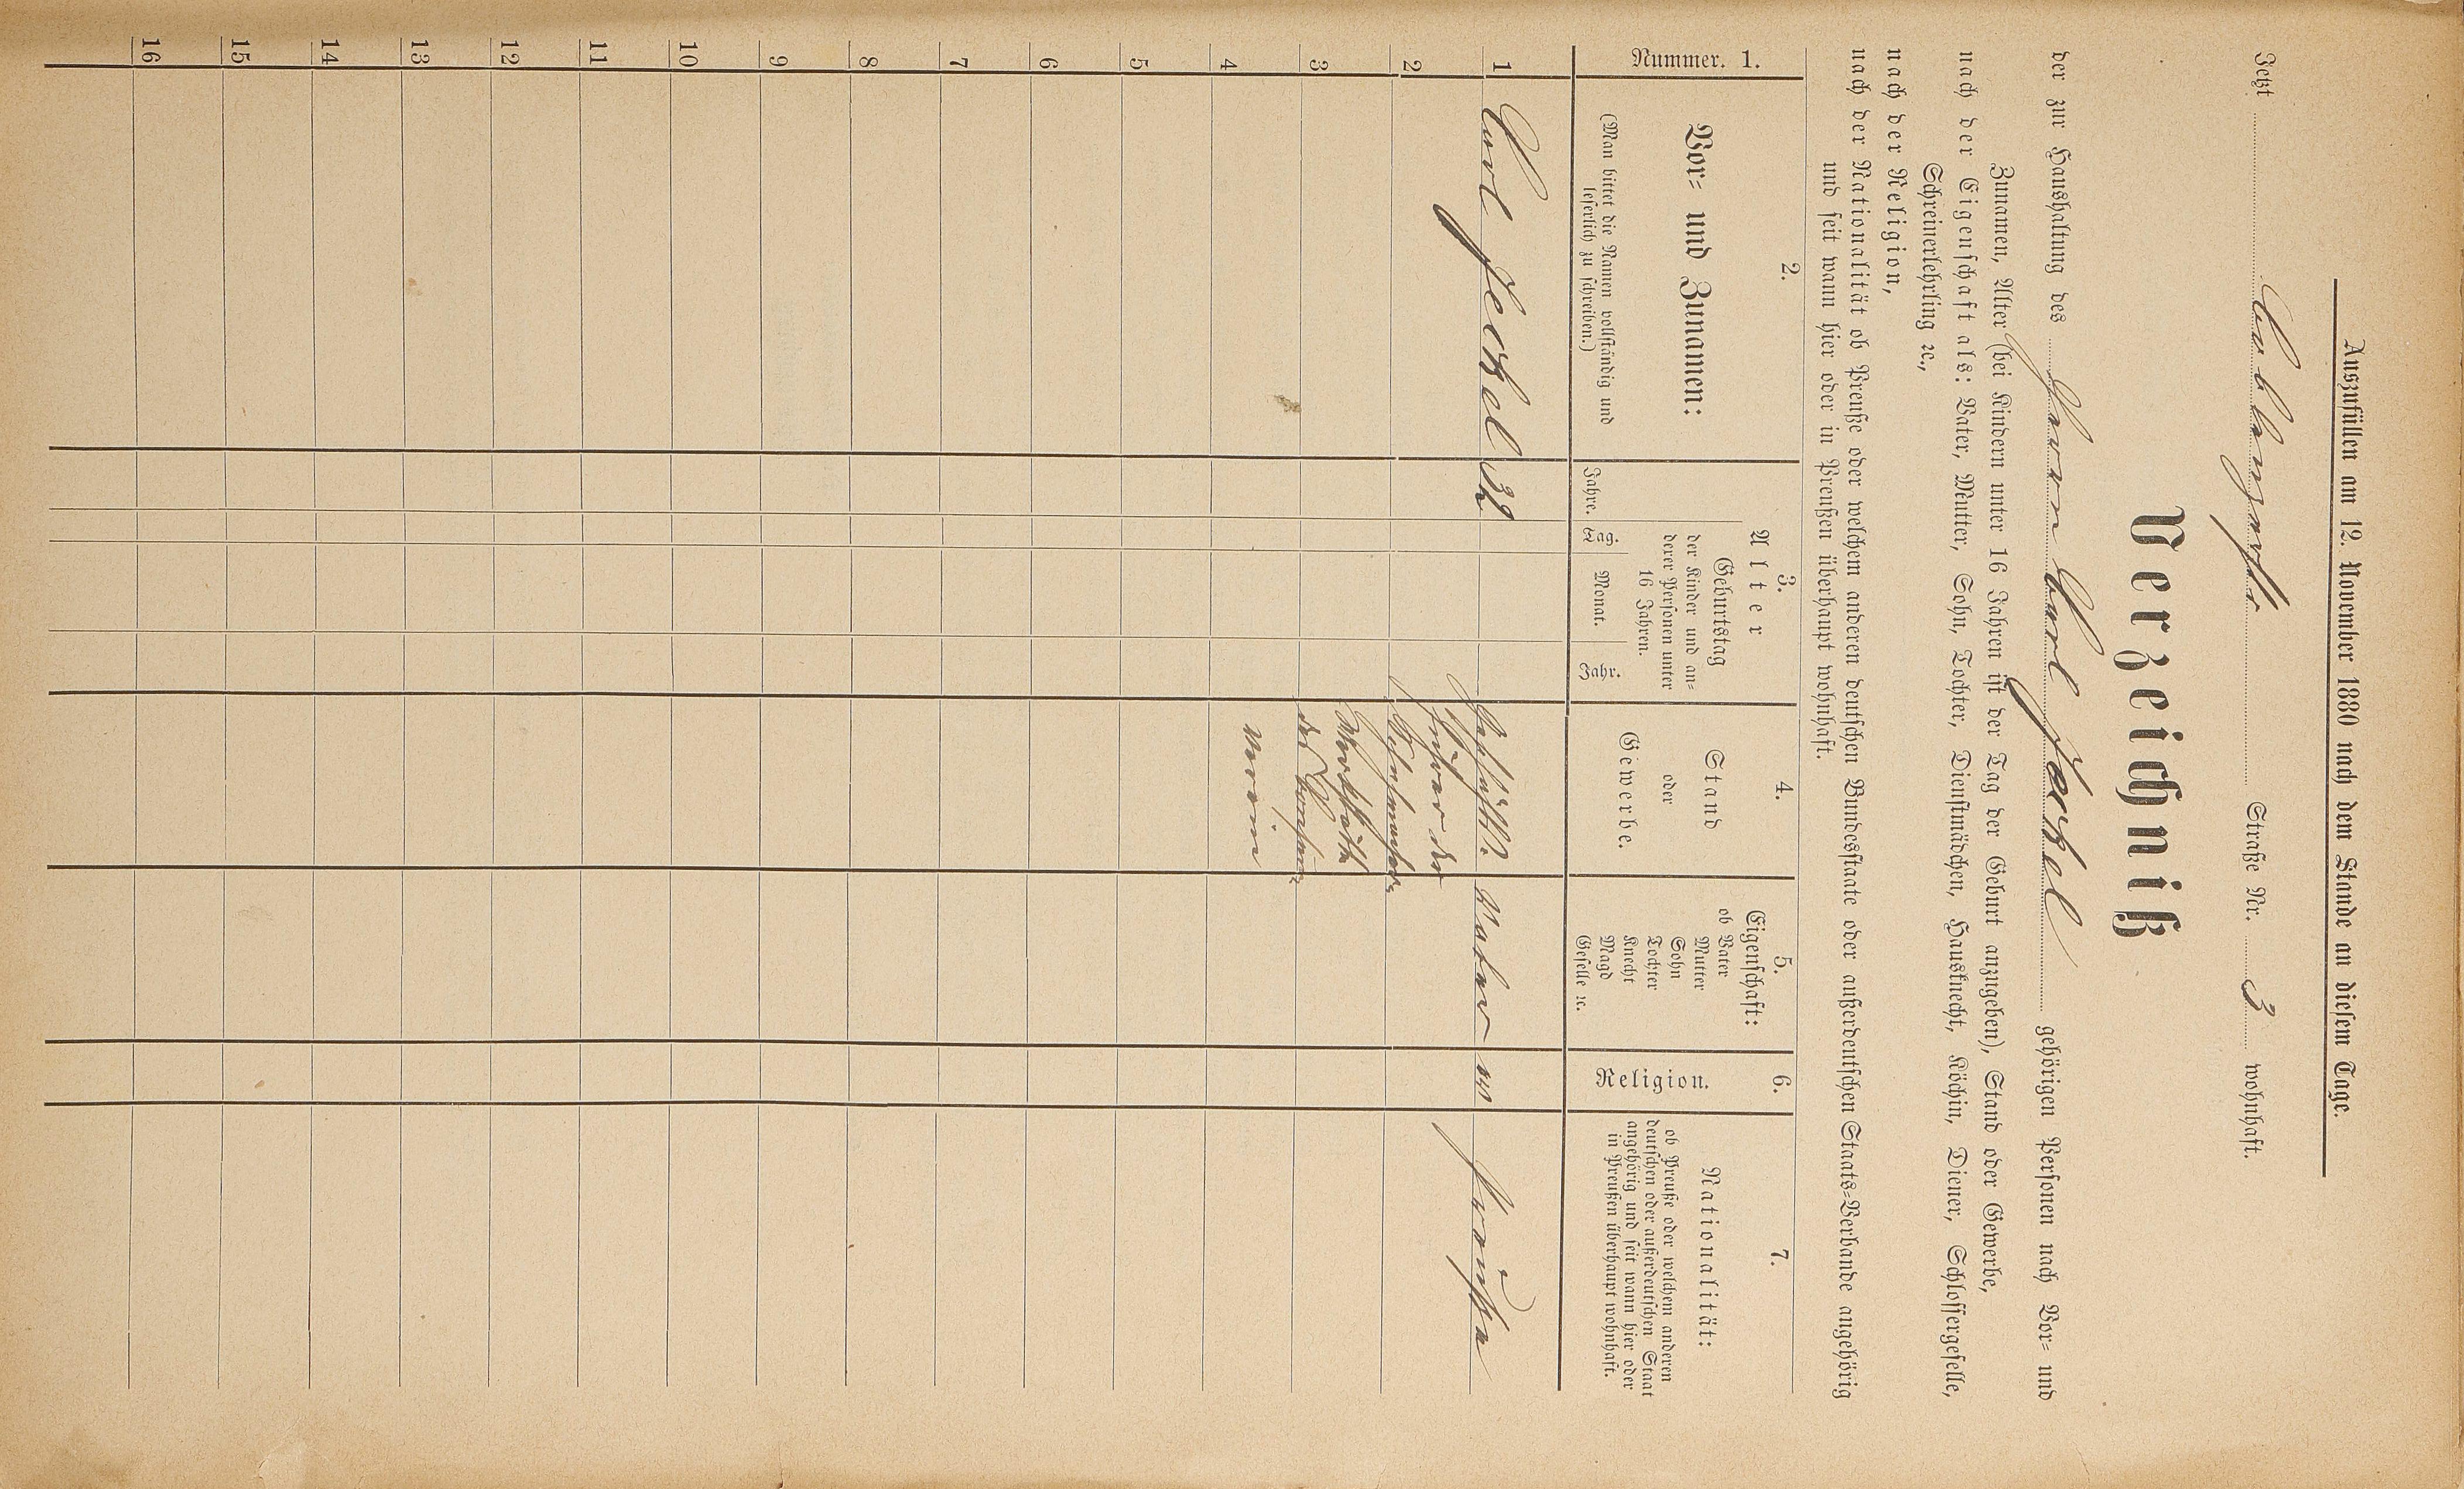 Auszufüllen am 12. November 1880 nach dem Stande an diesem Tage.
Jetzt Straße Nr. 3 wohnhaft.
Verzeichniß
der zur Haushaltung des Herrn Carl Jaekel gehörigen Personen nach Vor- und
Zunamen, Alter (bei Kindern unter 16 Jahren ist der Tag der Geburt anzugeben), Stand oder Gewerbe,
nach der Eigenschaft als: Vater, Mutter, Sohn, Tochter, Dienstmädchen, Hausknecht, Köchin, Diener, Schlossergeselle,
Schreinerlehrling ꝛc.,
nach der Religion,
nach der Nationalität ob Preuße oder welchem anderen deutschen Bundesstaate oder außerdeutschen Staats-Verbande angehörig
und seit wann hier oder in Preußen überhaupt wohnhaft.
Nummer. 1.
2.
Vor- und Zunamen:
(Man bittet die Namen vollständig und
leserlich zu schreiben.)
3.
Alter
Jahre.
Geburtstag
der Kinder und an-
derer Personen unter
16 Jahren.
Tag. Monat. Jahr.
4.
Stand
oder
Gewerbe.
5.
Eigenschaft:
ob Vater
Mutter
Sohn
Tochter
Knecht
Magd
Geselle ꝛc.
6.
Religion.
7.
Nationalität:
ob Preuße oder welchem anderen
deutschen oder außerdeutschen Staat
angehörig und seit wann hier oder
in Preußen überhaupt wohnhaft.
1 Carl Jaekel 32 Geschäftsl. Vater Preuße
führer der
2
Werkstätte
3 des
4 Verein
5
6
7
8
9
10
11
12
13
14
15
16